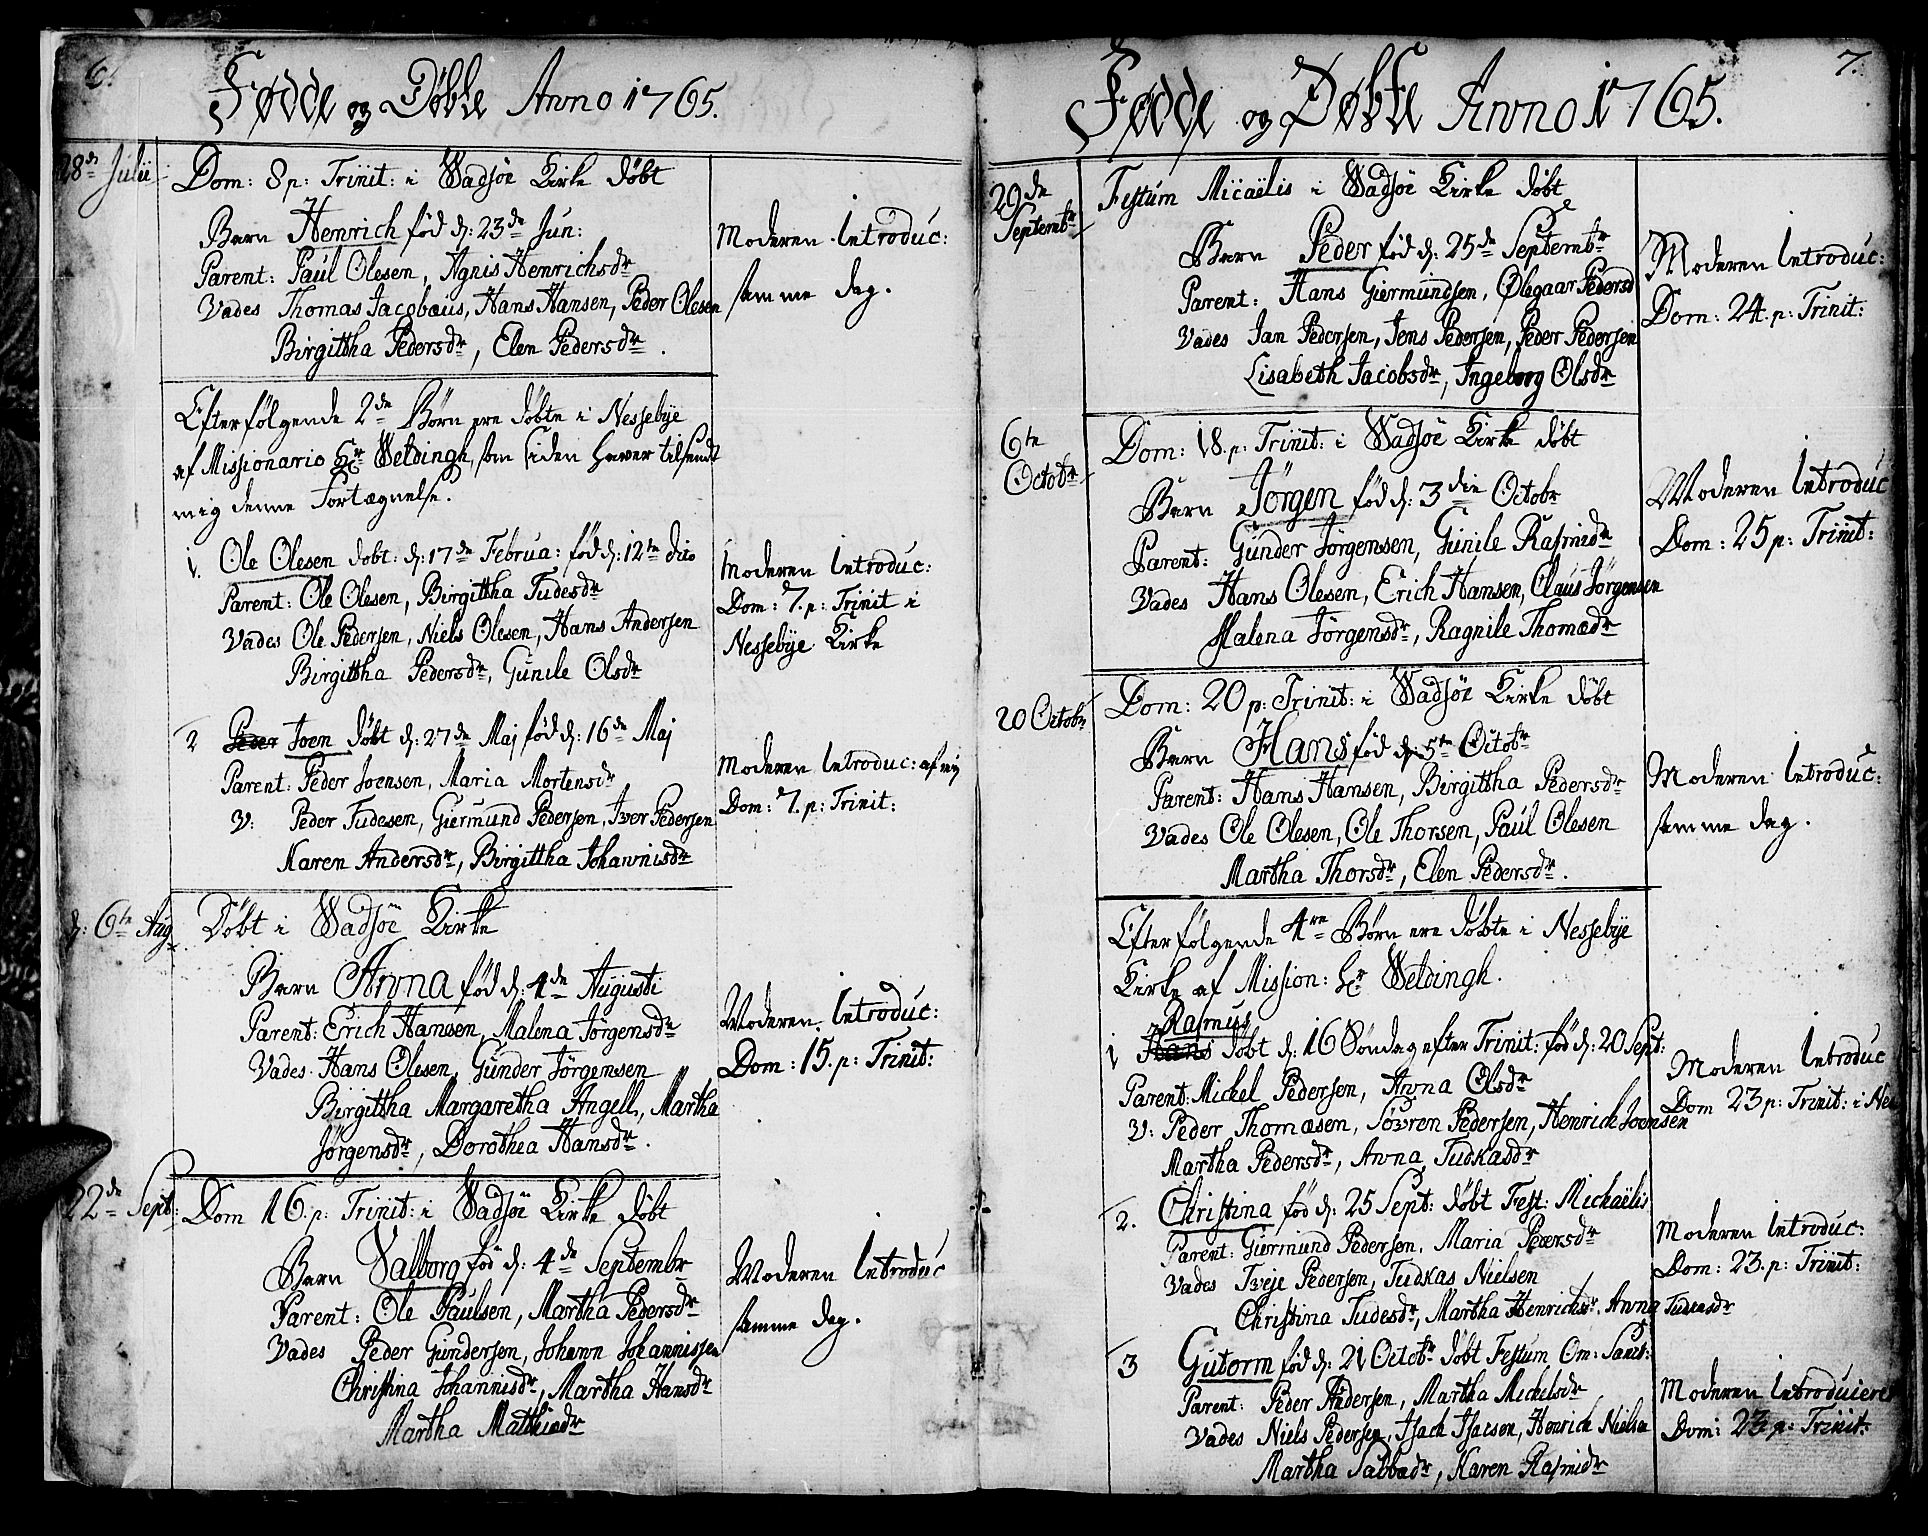 6.
Fødde og Døbte Anno 1765.
28de Julii
Dom: 8 p: Trinit: i Wadsöe Kirke døbt
Barn Henrich fød d: 23de Jun:
Parent: Paul Olesen, Agnis Henrichsdr
Vades Thomas Jacobæus, Hans Hansen, Peder Olesen
Birgittha Pedersdr, Elen Pedersdr.
Moderen Introduc:
samme dag.
Efterfølgende 2de Børn ere døbte i Nessebye
af Missionario Hr Weldingh, som siden haver tilsendt
mig denne Fortægnelse.
1. Ole Olesen døbt: d: 17de Februa: fød d: 12te dito
Parent: Ole Olesen, Birgittha Tudesdr
Vades Ole Pedersen, Niels Olesen, Hans Andersen
Birgittha Pedersdr, Gunile Olsdr
Moderen Introduc:
Dom: 7. p: Trinit i
Nessebye Kirke
2 Peder Joen døbt d: 27de Maj fød d: 16de Maj
Parent: Peder Joensen, Maria Mortensdr
V: Peder Tudesen, Giermund Pedersen, Iver Pedersen
Karen Andersdr, Birgittha Johannisdr
Moderen Introduc: af mig
Dom: 7. p: Trinit:
d: 6te Aug
Døbt i Wadsöe Kirke
Barn Anna fød d: 4de Augusti
Parent: Erich Hansen, Malena Jörgensdr
Vades: Hans Olesen, Gunder Jörgensen
Birgittha Margaretha Angell, Martha
Jörgensdr, Dorothea Hansdr.
Moderen Introduc:
Dom: 15. p: Trinit:
22de Sept:
Dom 16. p: Trinit: i Wadsöe Kirke døbt
Barn Valborg fød d: 4de Septembr
Parent: Ole Paulsen, Martha Pedersdr
Vades Peder Gundersen, Johan Johannissen
Christina Johannisdr, Martha Hansdr
Martha Matthisdr
Moderen Introduc
samme dag.
7.
Fødde og Døbte Anno 1765.
29de
Septembr
Festum Micaëlis i Wadsöe Kirke døbt
Barn Peder fød d: 25de Septembr
Parent: Hans Giermundsen, Ølegaar Pedersd
Vades Jan Pedersen, Jens Pedersen, Peder Pedersen
Lisabeth Jacobsdr, Ingeborg Olsdr
Moderen Introduc:
Dom: 24. p: Trinit:
6te
Octobr
Dom: 18. p: Trinit: i Wadsöe Kirke døbt
Barn Jörgen fød d: 3die Octobr
Parent: Gunder Jörgensen, Gunile Rasmidr
Vades Hans Olesen, Erich Hansen, Claus Jörgensen
Malena Jörgensdr, Ragnile Thomædr
Moderen Introduc
Dom: 25 p: Trinit:
20 Octobr
Dom: 20 p: Trinit: i Wadsöe Kirke døbt
Barn Hans fød d: 5te Octobr
Parent: Hans Hansen, Birgittha Pedersdr
Vades Ole Olesen, Ole Thorsen, Paul Olesen
Martha Thorsdr, Elen Pedersdr.
Moderen Introduc:
samme dag.
Efterfølgende 4re Børn ere døbte i Nessebye
Kirke af Mission: Hr Weldingh.
Rasmus
1 Hans døbt d: 16 Søndag efter Trinit: fød d: 20 Sept:
Parent: Mickel Pedersen, Anna Olsdr
V: Peder Thomæsen, Søvren Pedersen, Henrich Joensen
Martha Pedersdr, Anna Tudkasdr
Moderen Introduc
Dom 23 p: Trinit: i Nes
2. Christina fød d: 25 Sept: døbt Fest: Michaëlis
Parent: Giermund Pedersen, Maria Pedersdr
Vades Tveje Pedersen, Tudkas Nielsen
Christina Tudesdr, Martha Henrichsdr, Anna Tudesdr
Moderen Introduc:
Dom: 23. p: Trinit:
3 Gutorm fød d: 21 Octobr døbt Festum Om: Sanct:
Parent: Peder Andersen, Martha Mickelsdr
Vades Niels Pedersen, Isach Isacsen, Henrich Nielsen
Martha Sabbædr, Karen Rasmidr
Moderen Introduceret
Dom: 23 p: Trinit: